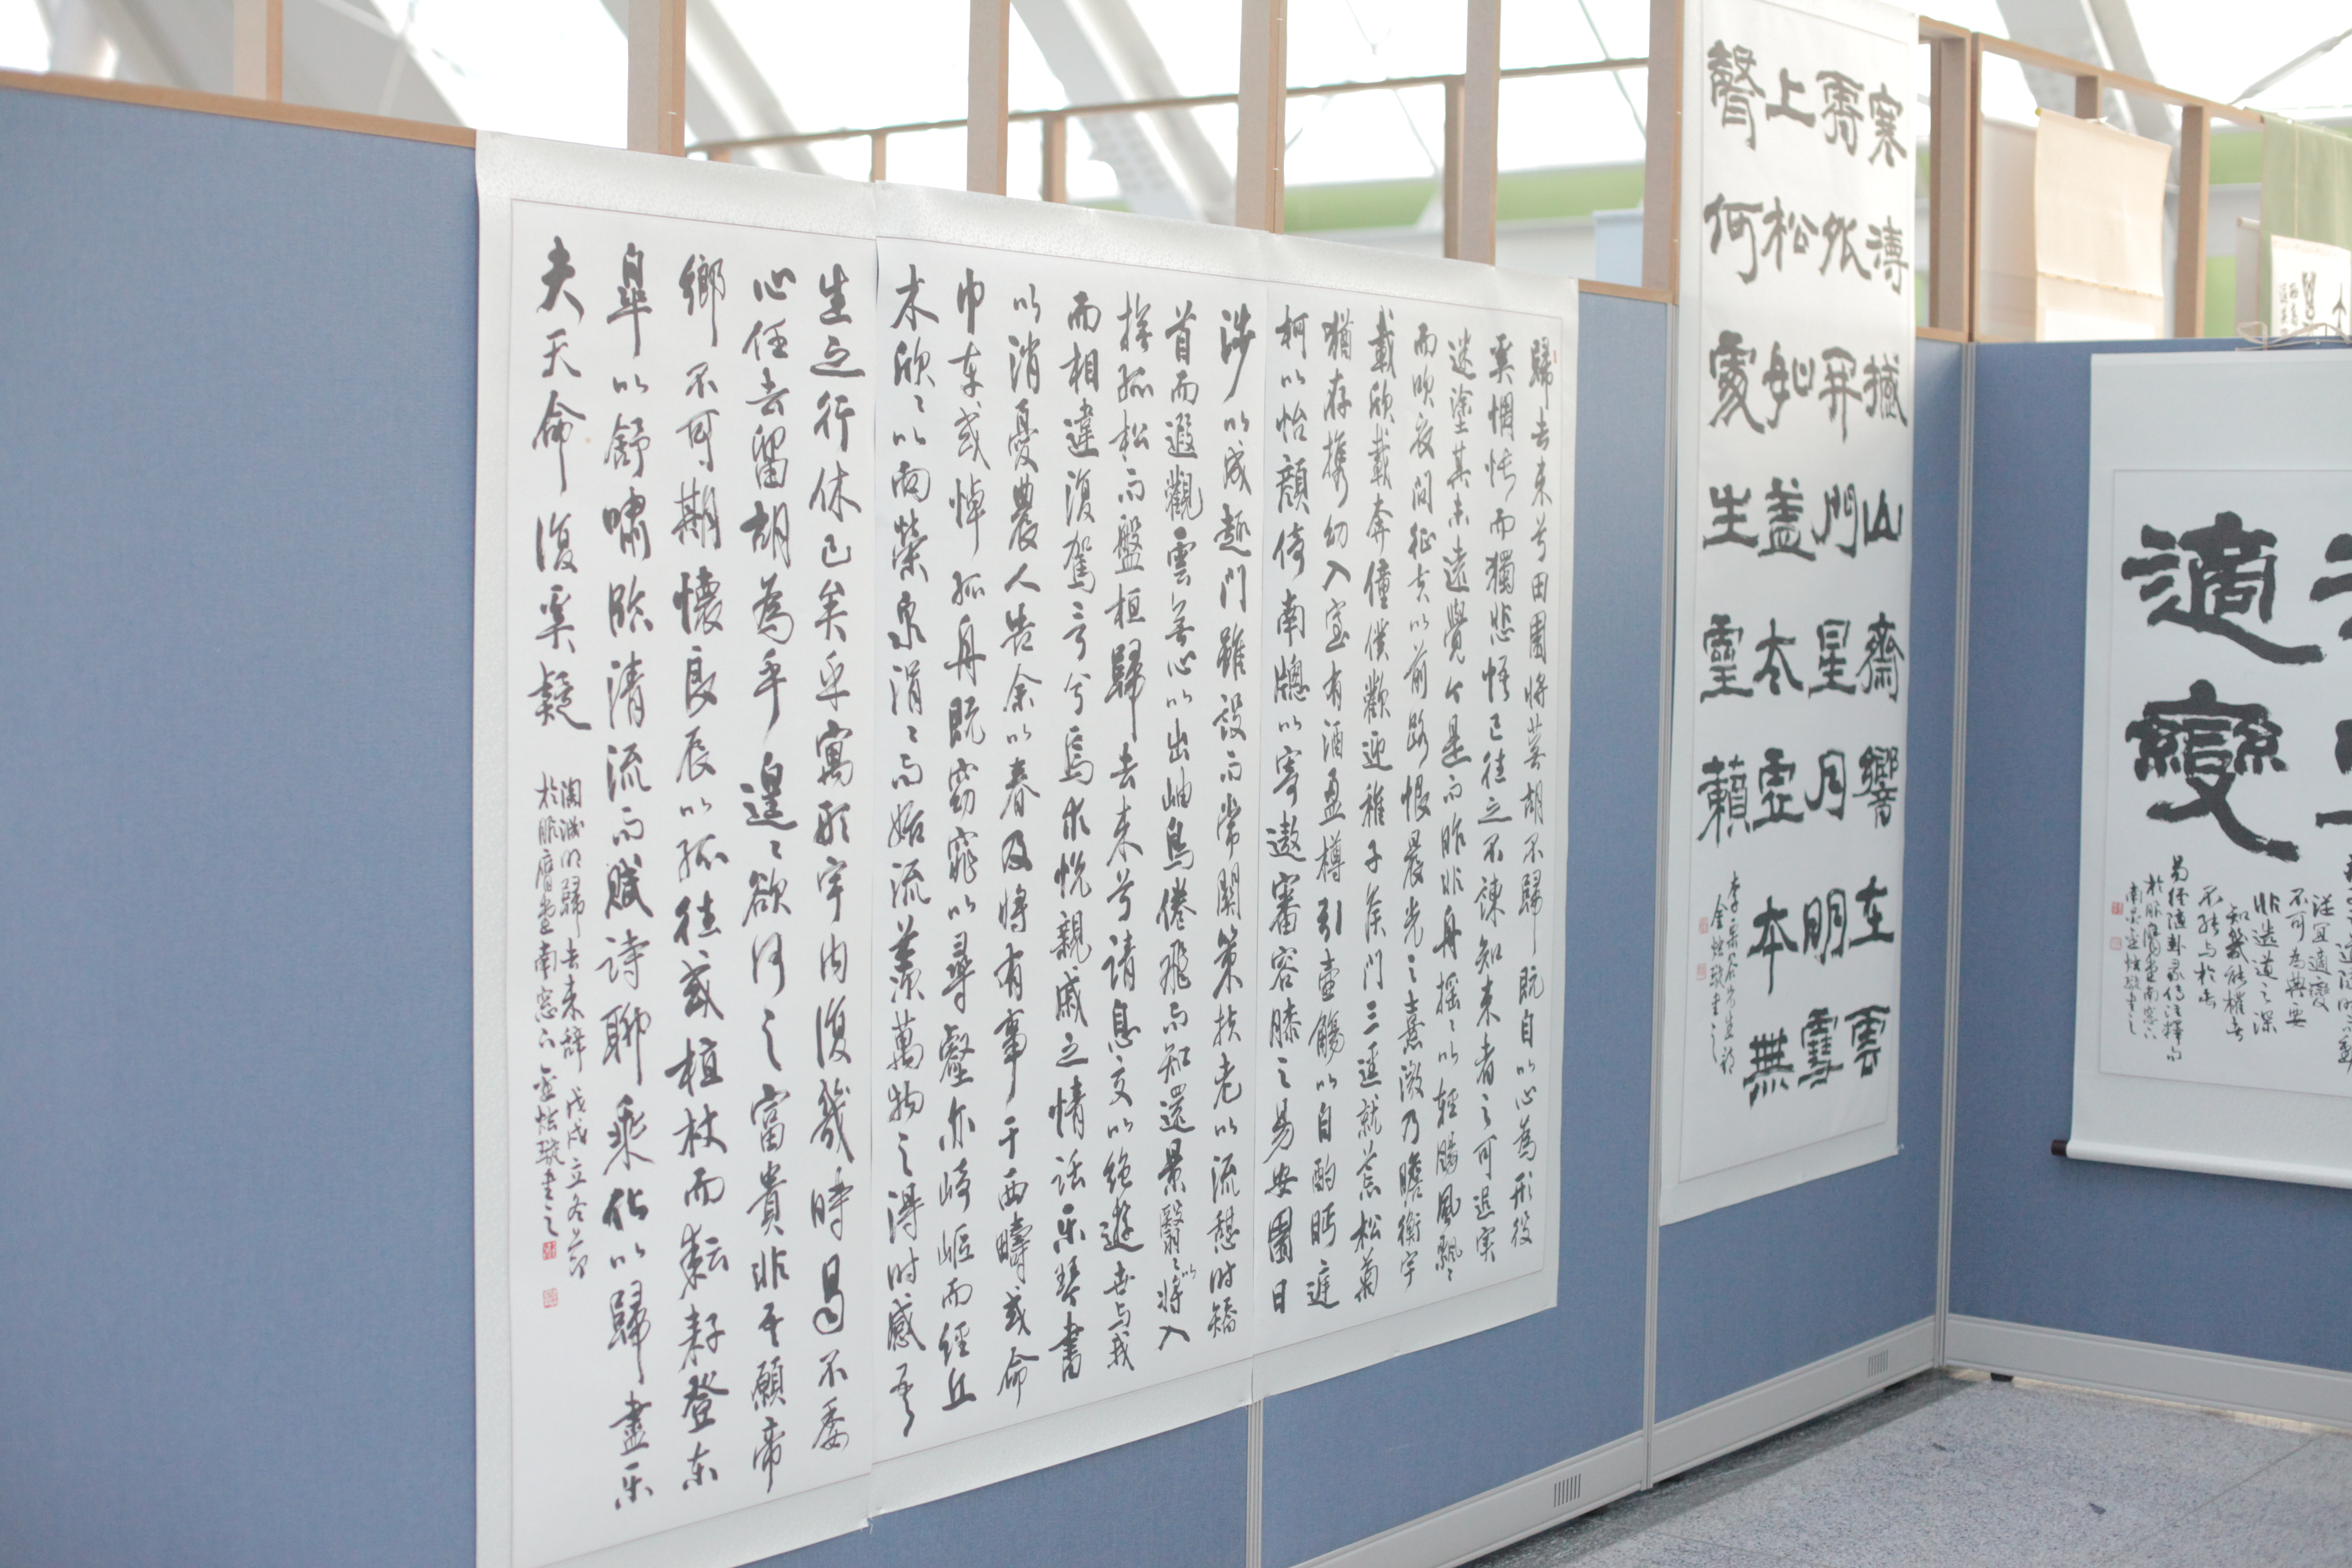 歸去來兮田園將蕪胡不歸既自以心為形役
奚惆悵而獨悲悟已往之不諫知來者之可追寔
迷塗其未遠覺今是而昨非舟搖〻以輕颺風飄〻
而吹衣問征夫以前路恨晨光之熹微乃瞻衡宇
載欣載奔僮僕歡迎稚子候門三逕就荒松菊
猶存携幼入室有酒盈樽引壺觴以自酌眄庭
柯以怡顏倚南牕以寄遨審容膝之易安園日
涉以成趣門雖設而常關策扶老以流憩時矯
首而遐觀雲無心以出岫鳥倦飛而知還景翳〻以將入
撫孤松而盤桓歸去來兮請息交以絕遊世与我
而相違復駕言兮焉求悅親戚之情話乐琴書
以消憂農人告余以春及將有事于西疇或命
巾車或棹孤舟既窈窕以尋壑亦崎嶇而經丘
木欣〻以向榮泉涓〻而始流羨萬物之得時感吾
生之行休已矣乎寓形宇內復幾時曷不委
心任去留胡為乎遑〻欲何之富貴非吾願帝
鄉不可期懷良辰以孤往或植杖而耘耔登东
皐以舒嘯臨清流而賦詩聊乘化以歸盡乐
夫天命復奚疑
陶淵明歸去來辭 戊戌立冬節
於服膺堂南窓下 金炫璇書之
寒濤撼山齋響在雲
霄外開門星月明雪
上松如盖太虛本無
聲何處生靈籟
李栗谷先生詩
金炫璇書之
適變
宜適變
不可為典要
非造道之深
知幾能權者
不能与於此
易經隨卦
於服膺堂南窓下